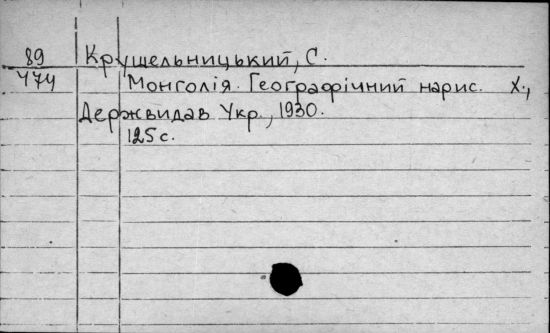 89 Крушельницький, С.
474 Монголія. Географічний нарис. Х.,
Держвидав Укр., 1930.
125 с.